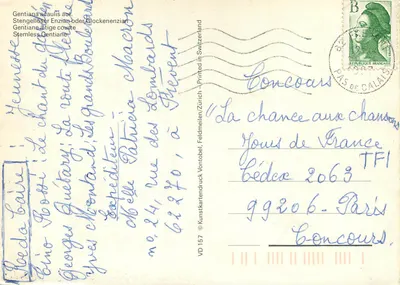 Gentiana acaulis auf
Stengelloser Enzian oder Glockenenzian
Gentiane à tige courte
Stemless Gentian
Jeunesse
Tino Rossi: Le chant du
Georges Guétary: La route fleurie
Yves Montand: Les grands Boulevards
Expéditeur
Patricia Macron
no. 24, rue des Lombards
62270, à Frévent
VD 157 © Kunstkartendruck Vontobel, Feldmeilen/Zürich – Printed in Switzerland
B
PAS DE CALAIS
Concours
"La chance aux chansons
Jours de France
TF1
Cédex 2063
99206 - Paris
Concours.